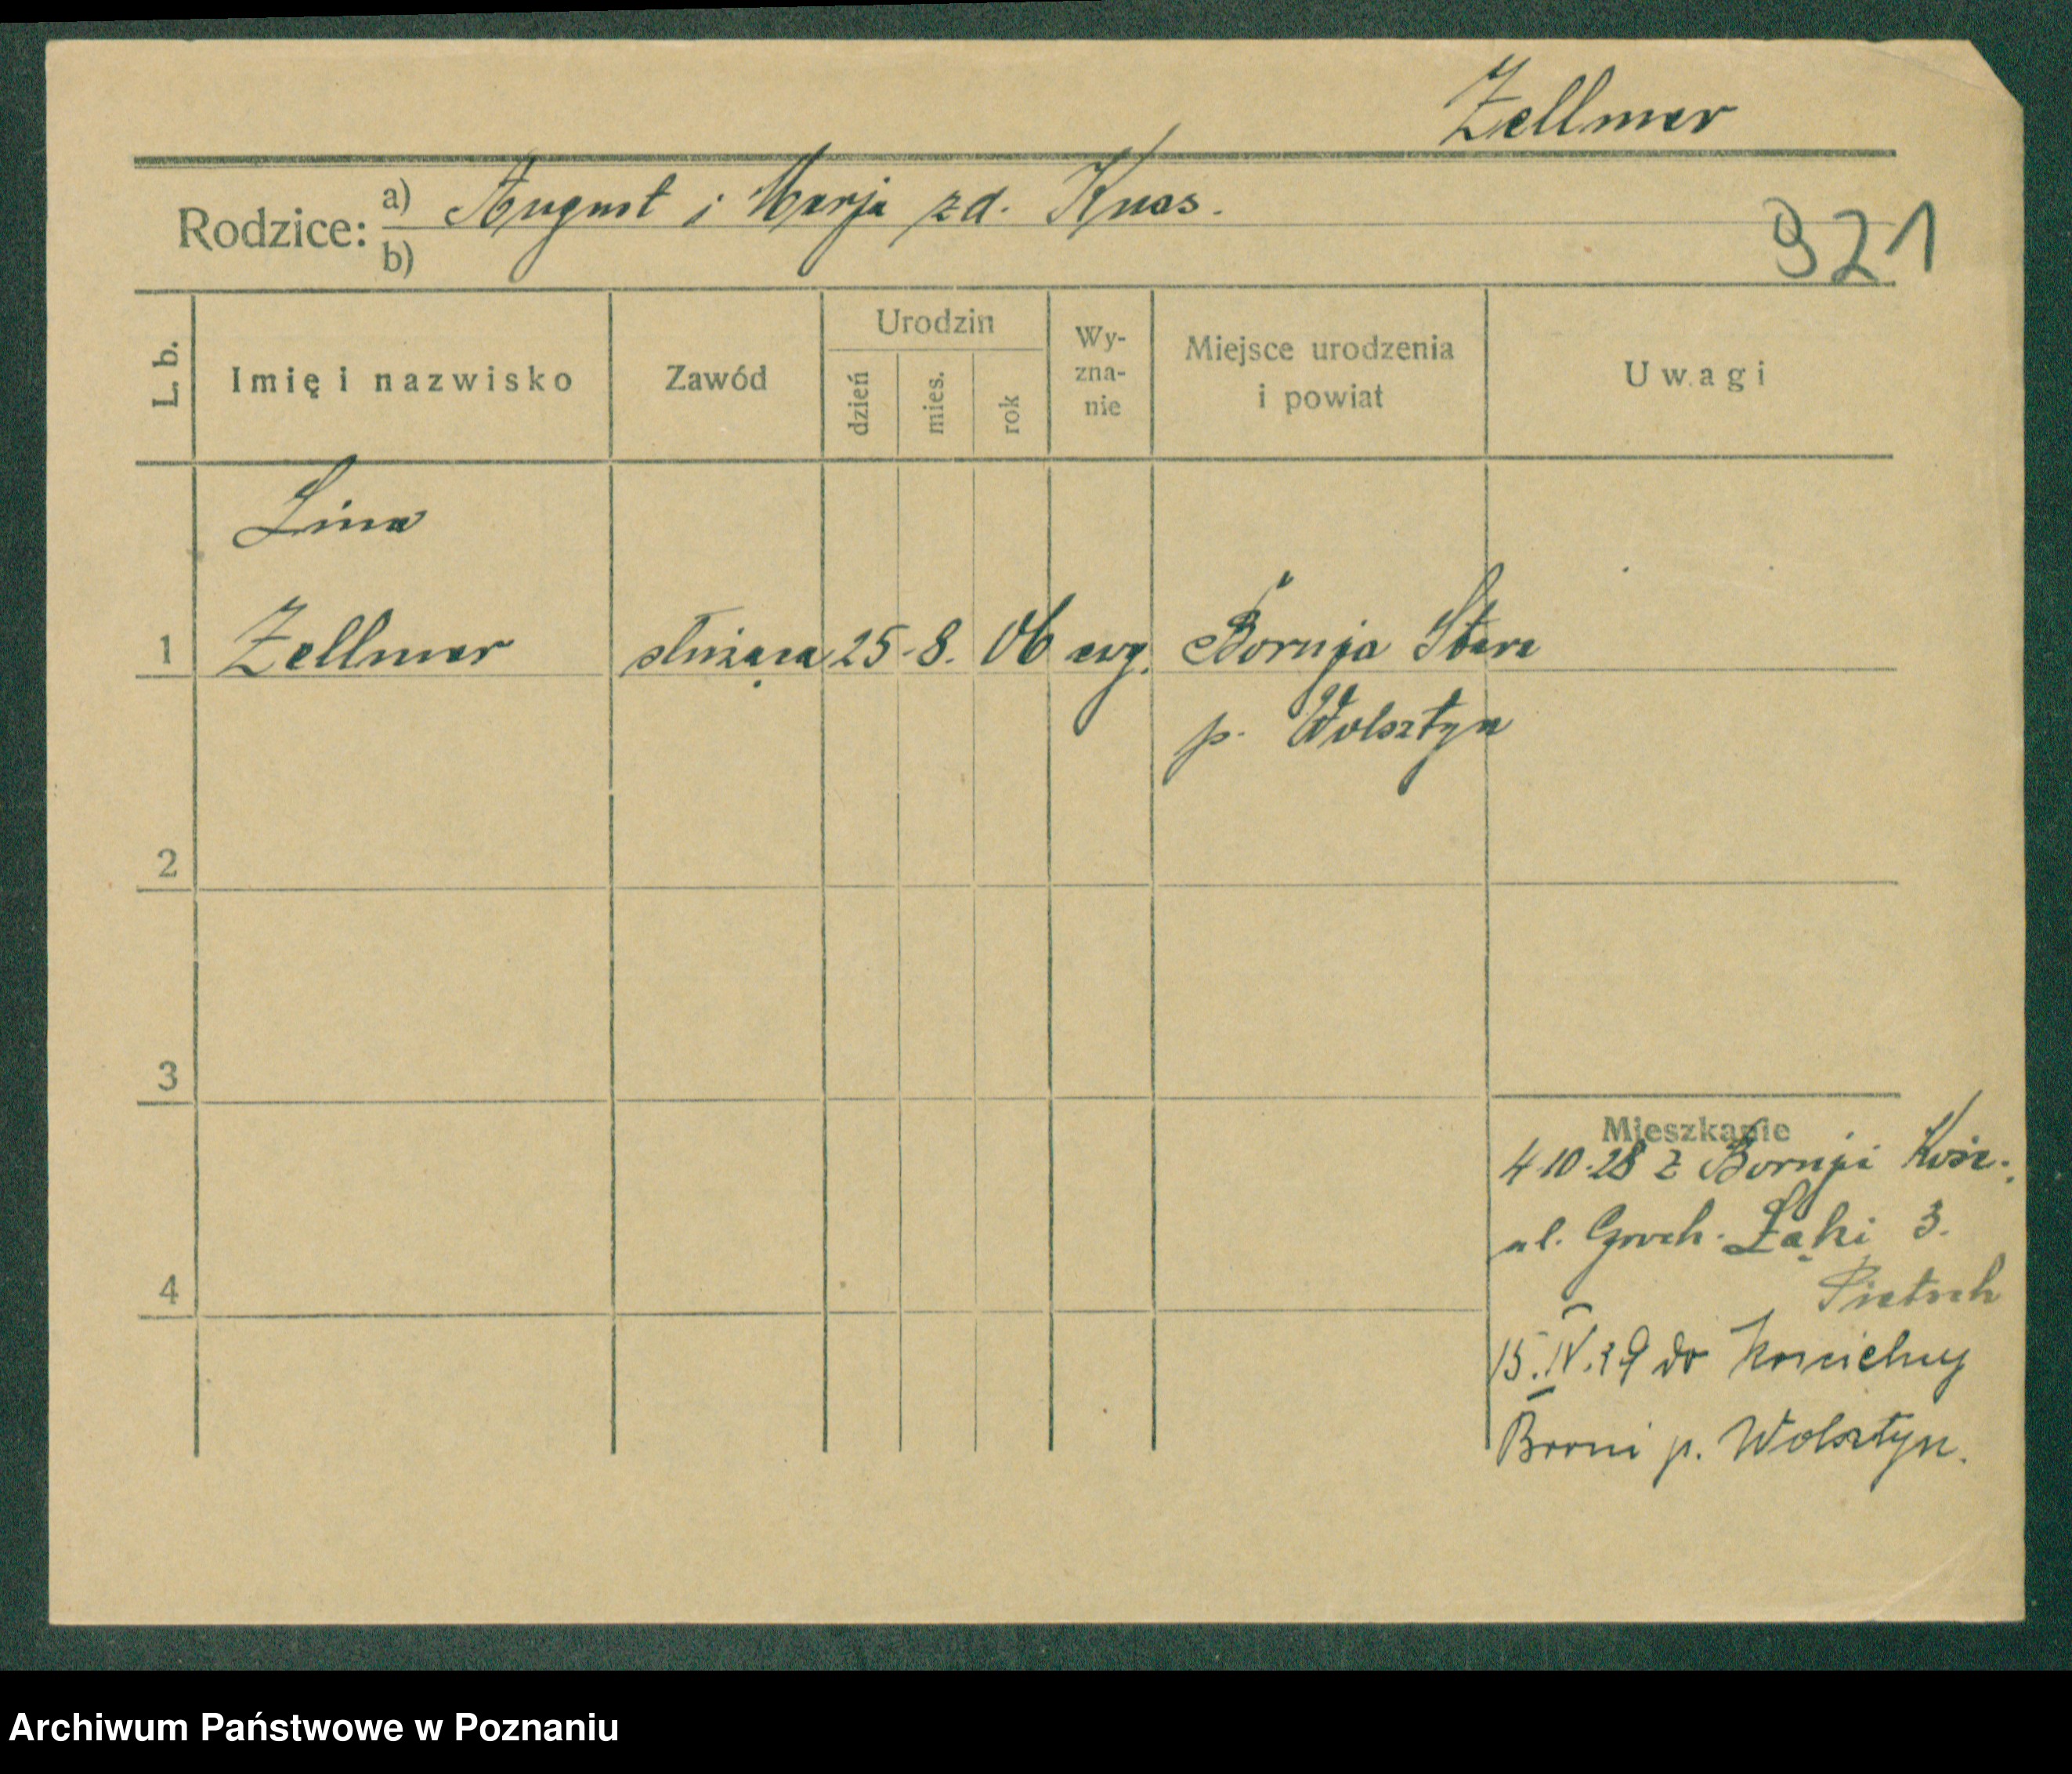 Zellmer
Rodzice: a) August i Marja zd. Knas.
b)
921
L. b.
Imię i nazwisko
Zawód
Urodzin
dzień
mies.
rok
Wy-
zna-
nie
Miejsce urodzenia
i powiat
Uwagi
Lina
1 Zellmer służąca 25. 8. 06 ewg. Boruja Stara
p. Wolsztyn
2
3
4
Mieszkanie
4.10.28 z Boruji Kość.
ul. Groch. Łąki 3.
Pietsch
15.IV.29 do Kościelnej
p. Wolsztyn.
Archiwum Państwowe w Poznaniu